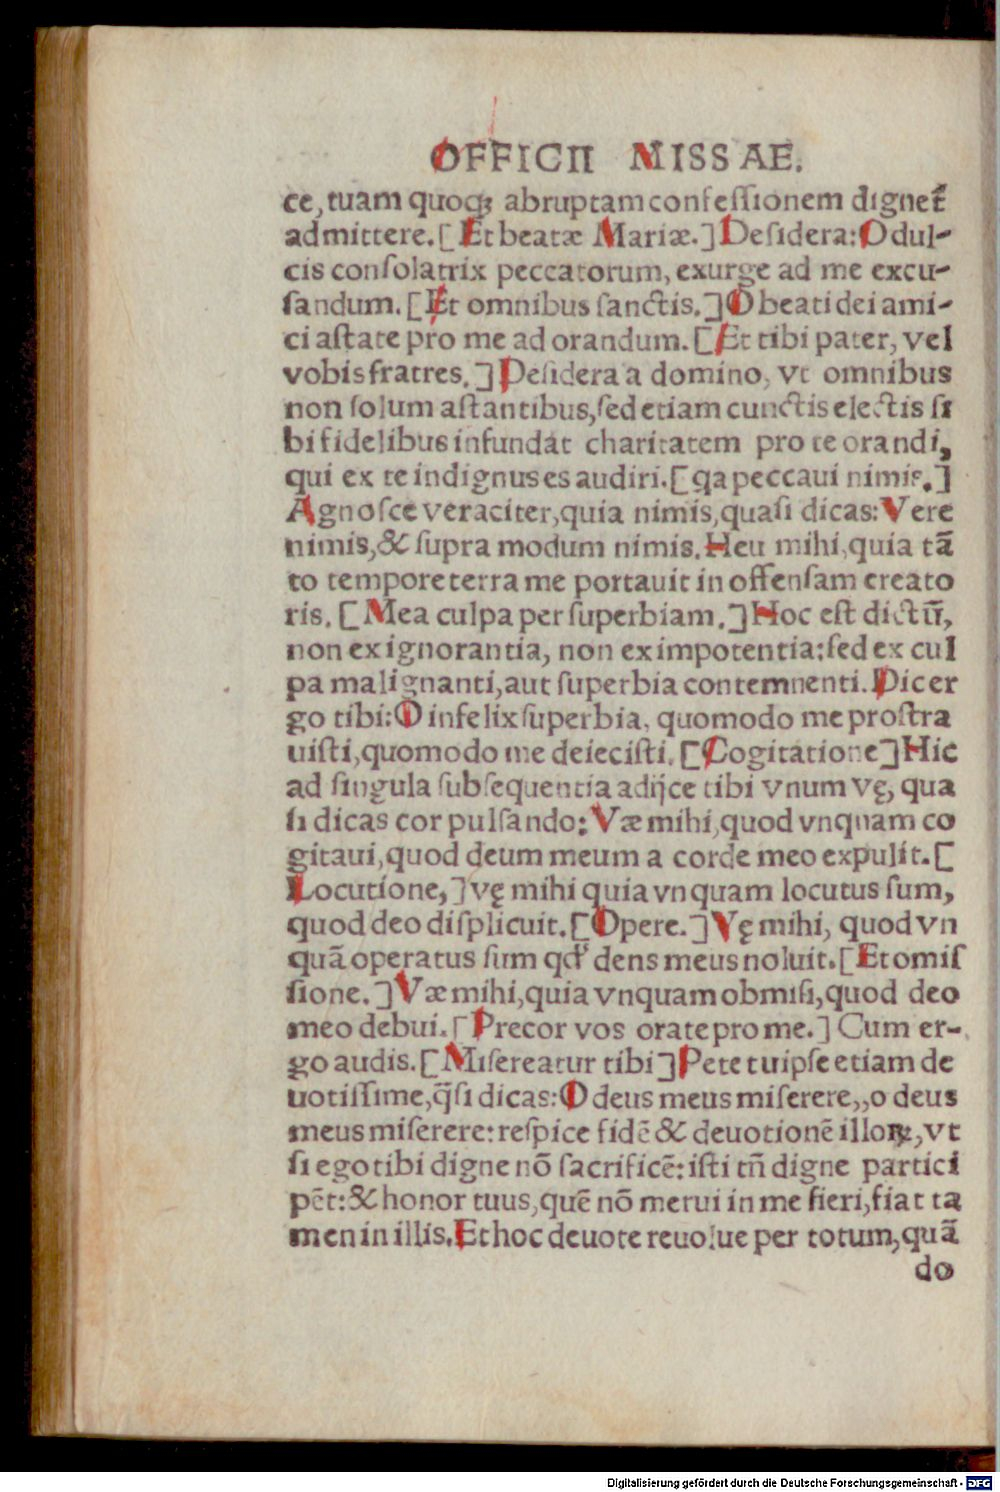 OFFICII MISSAE.
ce, tuam quoqꝫ abruptam confessionem dignet᷑
admittere. [Et beatæ Mariæ.] Desidera: O dul-
cis consolatrix peccatorum, exurge ad me excu-
sandum. [Et omnibus sanctis.] O beati dei ami-
ci astate pro me ad orandum. [Et tibi pater, vel
vobis fratres.] Desidera a domino, vt omnibus
non solum astantibus, sed etiam cunctis electis si
bi fidelibus infundat charitatem pro te orandi,
qui ex te indignus es audiri. [qa peccaui nimis.]
Agnosce veraciter, quia nimis, quasi dicas: Vere
nimis, & supra modum nimis. Heu mihi, quia tã
to tempore terra me portauit in offensam creato
ris. [Mea culpa per superbiam.] Hoc est dictũ,
non ex ignorantia, non ex impotentia: sed ex cul
pa malignanti, aut superbia contemnenti. Dic er
go tibi: O infelix superbia, quomodo me prostra
uisti, quomodo me deiecisti. [Cogitatione] Hic
ad singula subsequentia adijce tibi vnum vę, qua
si dicas cor pulsando: Væ mihi, quod vnquam co
gitaui, quod deum meum a corde meo expulit. [
Locutione,] vę mihi quia vnquam locutus sum,
quod deo displicuit. [Opere.] Vę mihi, quod vn
quã operatus sum qđ dens meus noluit. [Et omis
sione.] Væ mihi, quia vnquam obmisi, quod deo
meo debui. [Precor vos orate pro me.] Cum er-
go audis. [Misereatur tibi] Pete tuipse etiam de
uotissime, q̃si dicas: O deus meus miserere,, o deus
meus miserere: respice fidẽ & deuotionẽ illoꝝ, vt
si ego tibi digne nõ sacrificẽ: isti tñ digne partici
pẽt: & honor tuus, quẽ nõ merui in me fieri, fiat ta
men in illis. Et hoc deuote reuolue per totum, quã
do
Digitalisierung gefördert durch die Deutsche Forschungsgemeinschaft - DFG